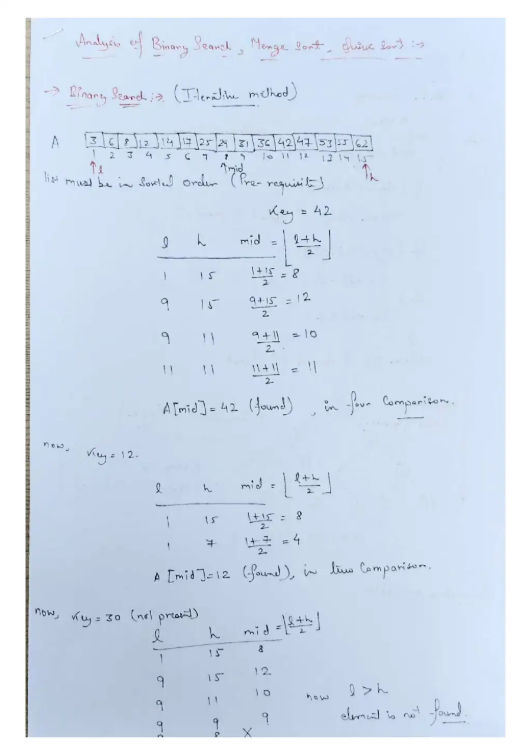 Analysis of Binary Search, Merge sort, Quick sort :→
→ Binary Search :→ (Iterative method)
A 3 6 8 12 14 17 25 29 31 36 42 47 53 55 62
1 2 3 4 5 6 7 8 9 10 11 12 13 14 15
↑l ↑mid ↑h
list must be in sorted order (Pre-requisite)
Key = 42
l h mid = ⌊(l+h)/2⌋
1 15 (1+15)/2 = 8
9 15 (9+15)/2 = 12
9 11 (9+11)/2 = 10
11 11 (11+11)/2 = 11
A[mid] = 42 (found) , in four Comparison.
now, Key = 12.
l h mid = ⌊(l+h)/2⌋
1 15 (1+15)/2 = 8
1 7 (1+7)/2 = 4
A[mid]=12 (found), in two Comparison.
now, Key = 30 (not present)
l h mid = ⌊(l+h)/2⌋
1 15 8
9 15 12
9 11 10 now l > h
9 9 9 element is not found.
9 8 X